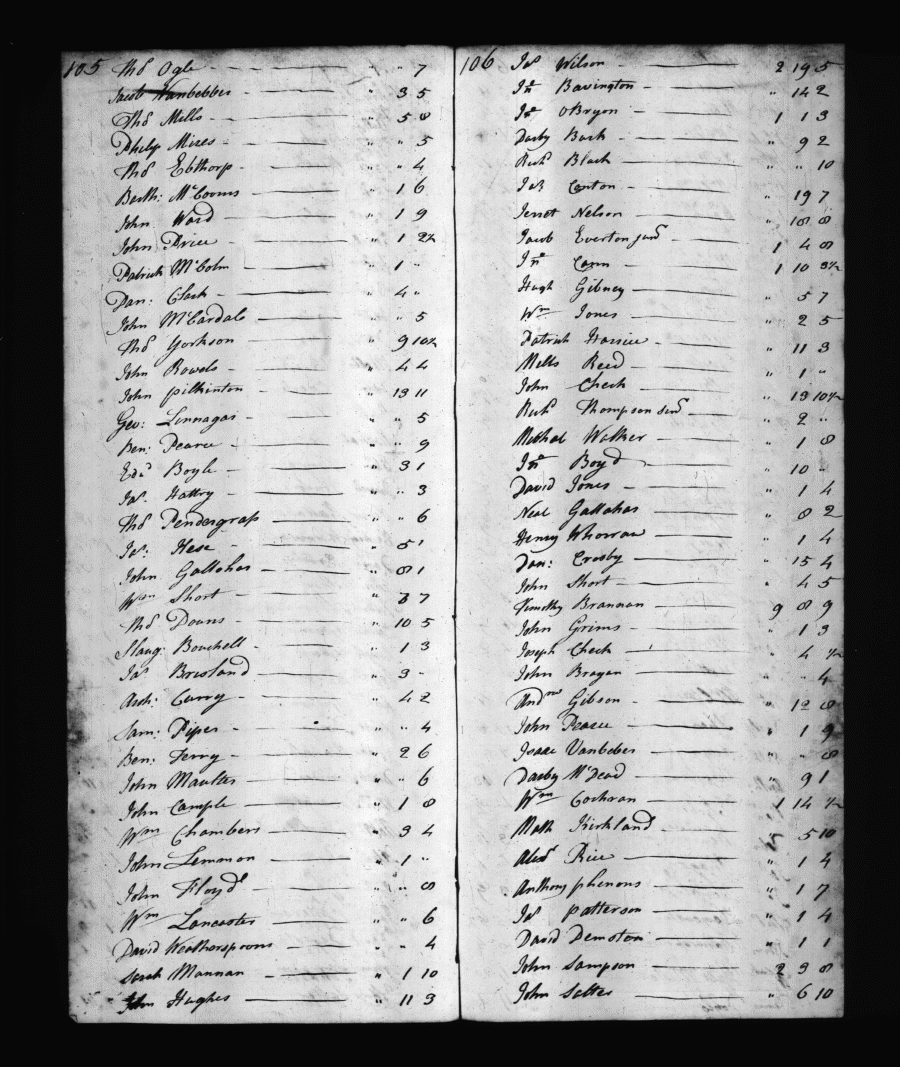 105 Thos Ogle - " " 7
Jacob Vanbebber - " 3 5
Thos Mills - " 5 8
Philip Mires - " " 5
Thos Ebthorp - " " 4
Barth: McCooms - " 1 6
John Ward - " 1 9
John Price - " 1 2½
Patrick McColm - " 1 "
Dan: Clark - " 4 "
John McCardale - " " 5
Thos Yorkson - " 9 10½
John Rowels - " 4 4
John pilkinton - " 13 11
Geo: Linnagar - " " 5
Ben: Pearce - " " 9
Edd Boyle - " 3 1
Jas. Hattry - " " 3
Thos Pendergrass - " " 6
Jas: Hese - " 5 1
John Gallahar - " 8 1
Wm Short - " 3 7
Thos Downs - " 10 5
Slaug: Bouchell - " 1 3
Jas Brisland - " 3 "
Arch: Curry - " 4 2
Sam: Piper - " " 4
Ben: Ferry - " 2 6
John Maulter - " " 6
John Cample - " 1 8
Wm Chambers - " 3 4
John Lemmon - " 1 "
John Floyd - " " 8
Wm Lancaster - " " 6
David Weatherspoons - " " 4
Sarah Mannan - " 1 10
John Hughes - " 11 3
106 Jas Wilson - 2 19 5
Jno Bavington - " 14 2
Jno OBryon - 1 1 3
Darby Bark - " 9 2
Richd Black - " " 10
Jas Canton - " 19 7
Jerret Nelson - " 18 8
Jacob Everton junr - 1 4 8
Jno Cann - 1 10 3½
Hugh Gibney - " 5 7
Wm Jones - " 2 5
Patrick - " 11 3
Mills Reed - " 1 "
John Cheek - " 13 10½
Richd Thompson senr - " 2 "
Michal Walker - " 1 8
Jno Boyd - " 10 "
David Jones - " 1 4
Neal Gallahar - " 8 2
Henry Whorraw - " 1 4
Dan: Crosby - " 15 4
John Short - " 4 5
Timothy Brannan - 9 8 9
John Grims - " 1 3
Joseph Cheek - " 4 ½
John Bragan - " " 4
Andrw Gibson - " 12 8
John Pearce - " 1 9
Isaac Vanbeber - " " 8
Darby McDead - " 9 1
Wm Cochran - 1 14 ½
Math Kirkland - " 5 10
Alexr Rice - " 1 4
Anthony phenons - " 1 7
Jas patterson - " 1 4
David - " 1 1
John Sampson - 2 3 8
John Salter - " 6 10